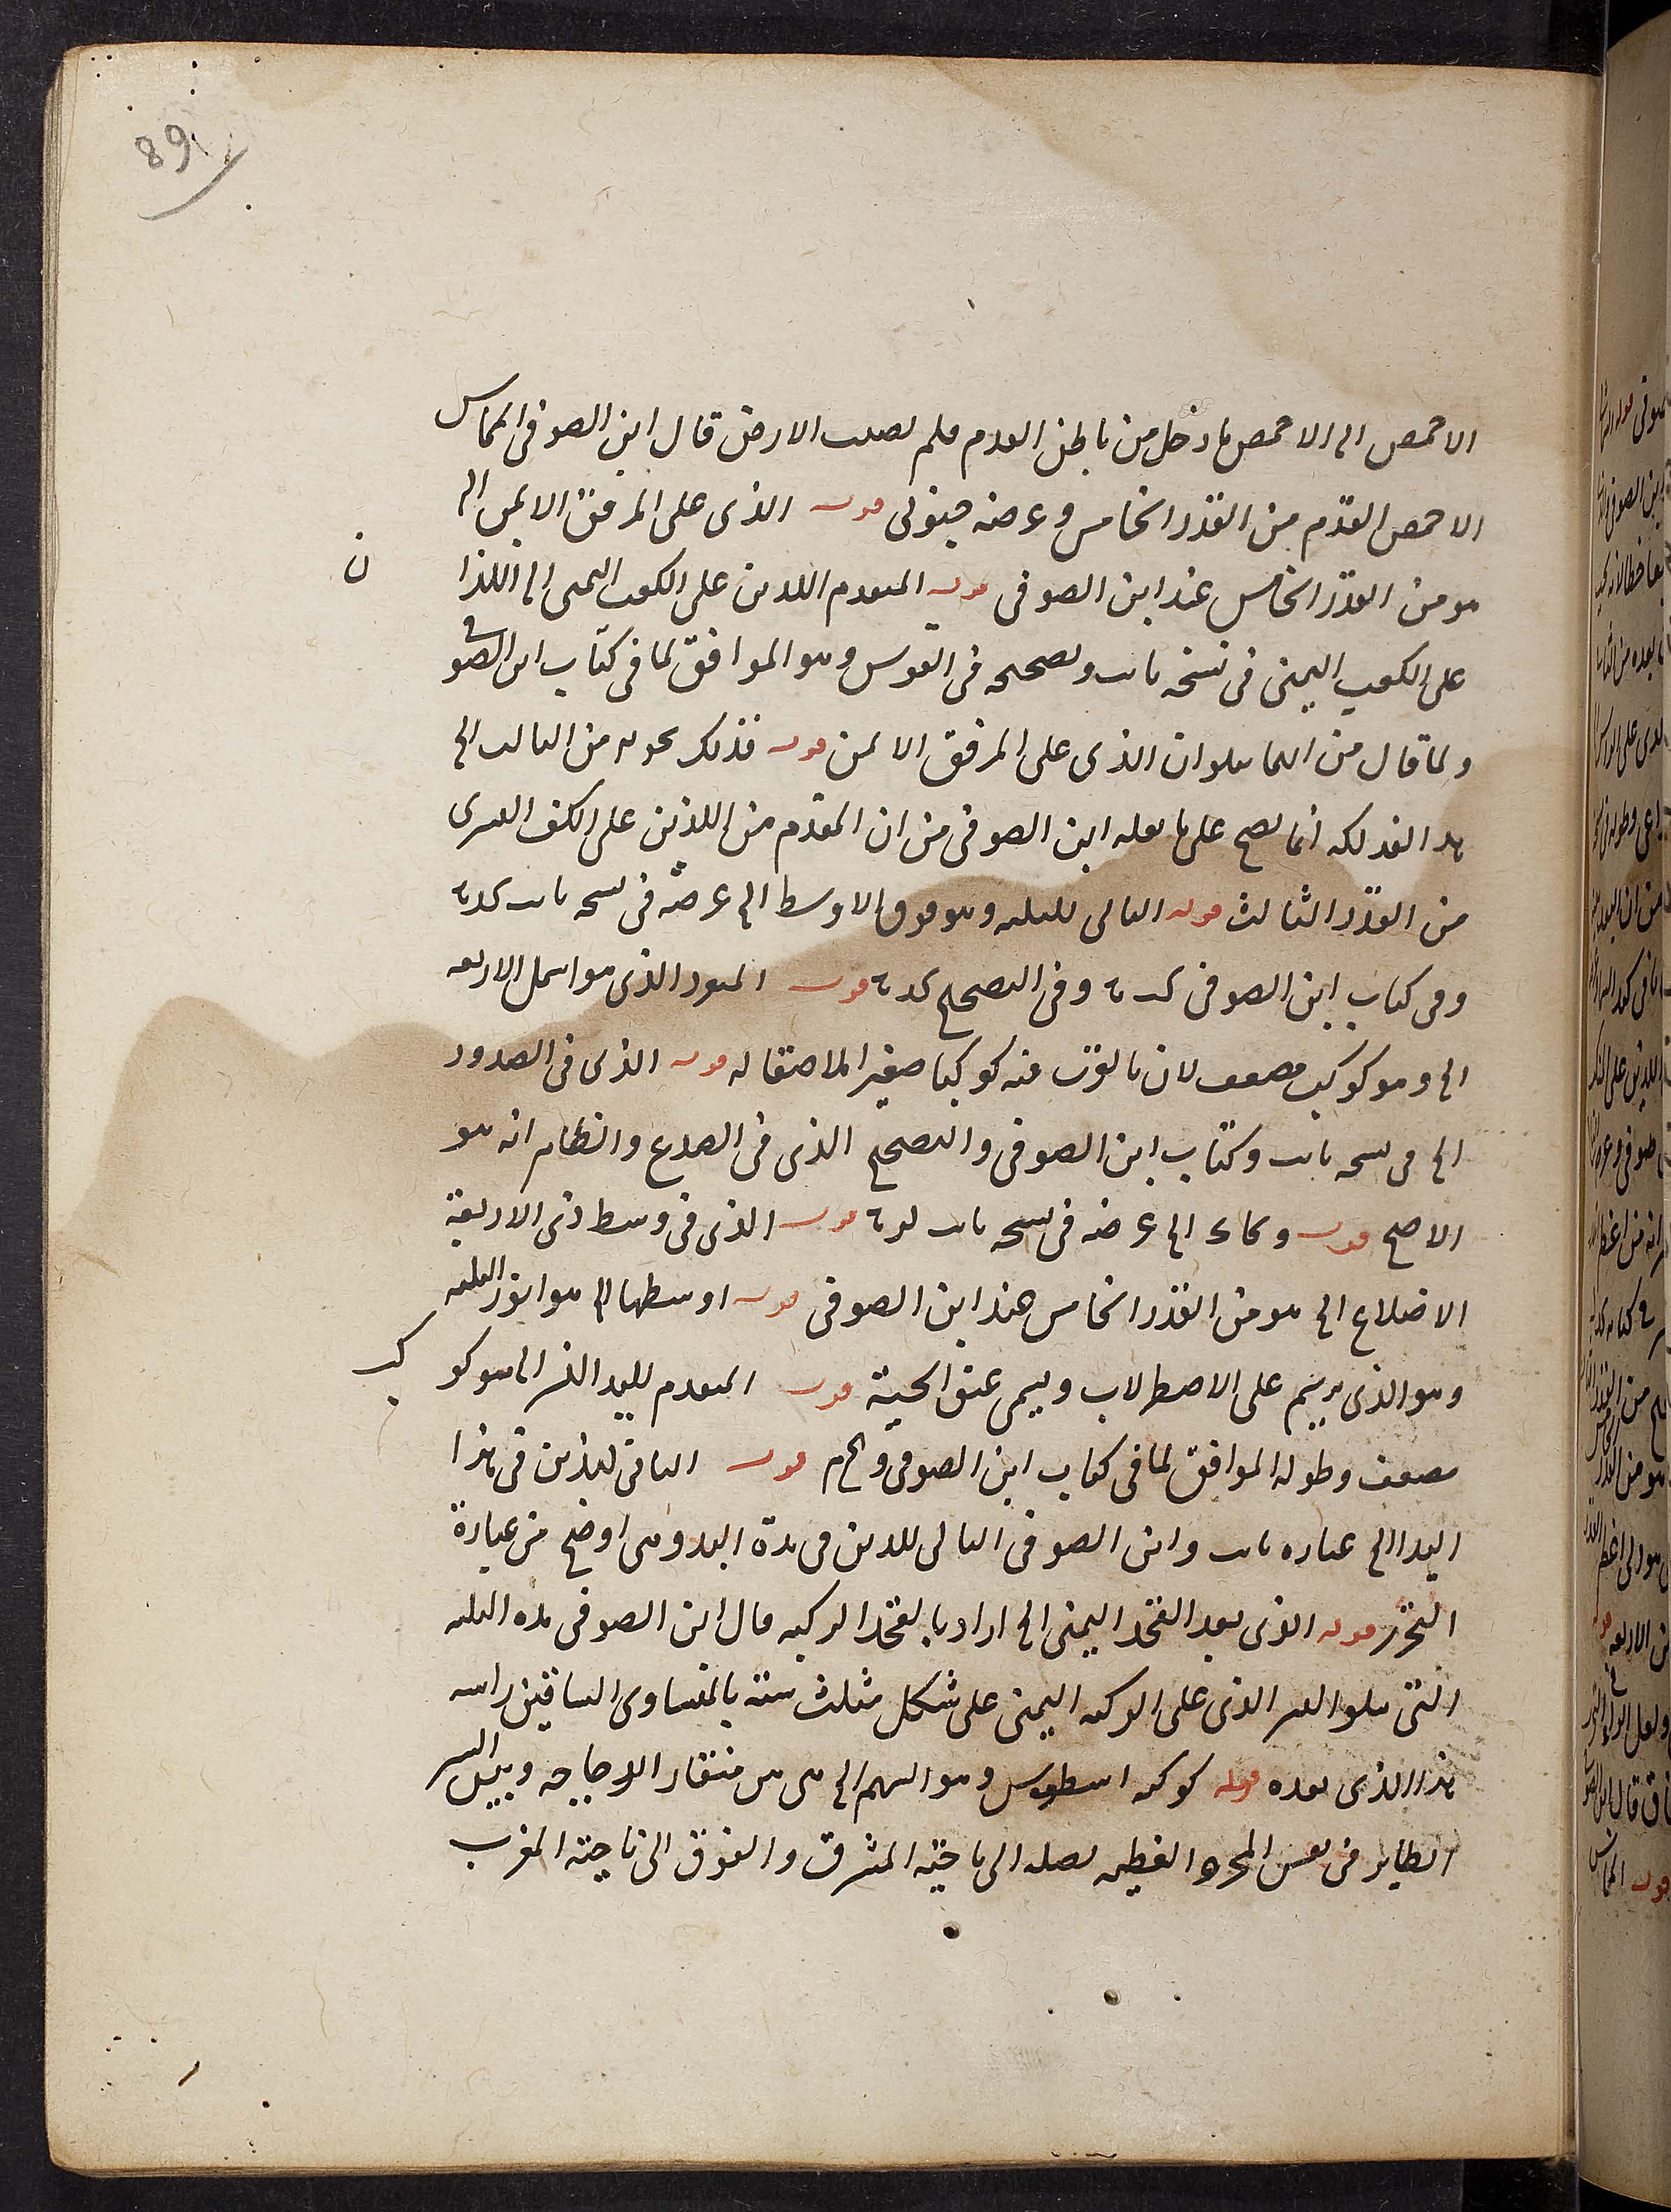 89
الاخمص الى الاخمص ما دخل من باطن القدم فلم يصب الارض قال ابن الصوفى المماس
الاخمص القدم من القدر الخامس وعرضه جنوبى قوله الذى على المرفق الايمن الى
هو من القدر الخامس عند ابن الصوفى قوله المتقدم اللذين على الكعب اليمنى الى اللذا ن
على الكعب اليمنى فى نسخة ثابت وتصحيحه فى القوس وهو الموافق لما فى كتاب ابن الصوفى
ولما قال من ان الذى على المرفق الايمن قوله فذلك نحوه من الثالث الى
هذا الفذلكه انما يصح على ما نقله ابن الصوفى من ان المقدم من اللذين على الكتف اليسرى
من القدر الثالث قوله التالى للثلثه وهو فوق الاوسط الى عرضه فى نسخة ثابت كد
وفى كتاب ابن الصوفى وفى التصحيح كد قوله المنفرد الذى هو اسفل الاربعه
الى وهو كوكب مضعف لان بالقرب منه كوكبا صغيرا ملاصقا له قوله الذى فى الصدور
الى فى نسخة ثابت وكتاب ابن الصوفى والتصحيح الذى فى الصدغ والظاهر انه هو
الاصح قوله الى عرضه فى نسخة ثابت قوله الذى فى وسط ذى الاربعة
الاضلاع الى هو من القدر الخامس عند ابن الصوفى قوله اوسطها الى هو انور الثلثه
وهو الذى يرسم على الاصطرلاب ويسمى عنق الحية قوله المتقدم لليد اليسرى الى هو كوكب
مضعف وطوله الموافق لما فى كتاب ابن الصوفى قوله الباقى للذين فى هذا
اليد الى عباره ثابت وابن الصوفى التالى للذين فى هذة اليد وهى اوضح من عبارة
التحرير قوله الذى بعد الفخذ اليمنى الى اراد بالفخذ الركبه قال ابن الصوفى هذه الثلثه
التى تتلو النير الذى على الركبه اليمنى على شكل مثلث شبيه بالمتساوى الساقين راسه
هذا الذى بعده قوله كوكبه اسطوس وهو السهم الى هى بين منقار الدجاجه وبين النسر
الطاير فى نفس المجره العظيمه نصله الى ناحية المشرق والفوق الى ناحية المغرب